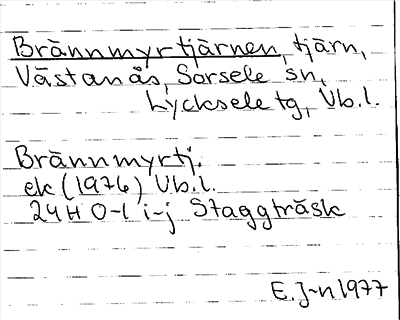 Brännmyrtjärnen, tjärn,
Västanås, Sorsele sn,
Lycksele tg, Vb.l.
Brännmyrtj.
ek (1976) Vb.l.
24H 0-1 i-j Staggträsk
E. J-n 1977